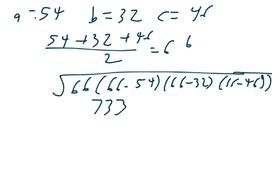 a = 54 b = 32 c = 46
54 + 32 + 46 / 2 = 66
√66(66-54)(66-32)(66-46)
733